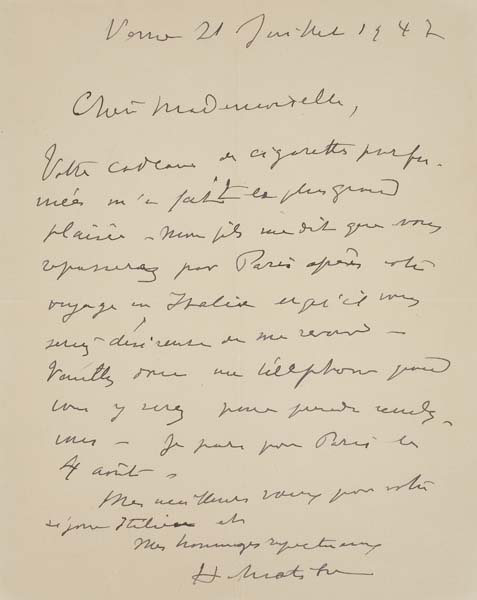 Vence 21 Juillet 1947
Chère Mademoiselle,
Votre cadeau de cigarettes parfu-
mées m'a fait le plus grand
plaisir – Mon fils me dit que vous
repasserez par Paris après votre
voyage en Italie et qu'il vous
serez désireuse de me revoir –
Veuillez donc me téléphoner quand
vous y serez pour prendre rendez-
vous – Je pars pour Paris le
4 août –
Mes meilleurs vœux pour votre
séjour Italien et
mes hommages respectueux
H. Matisse